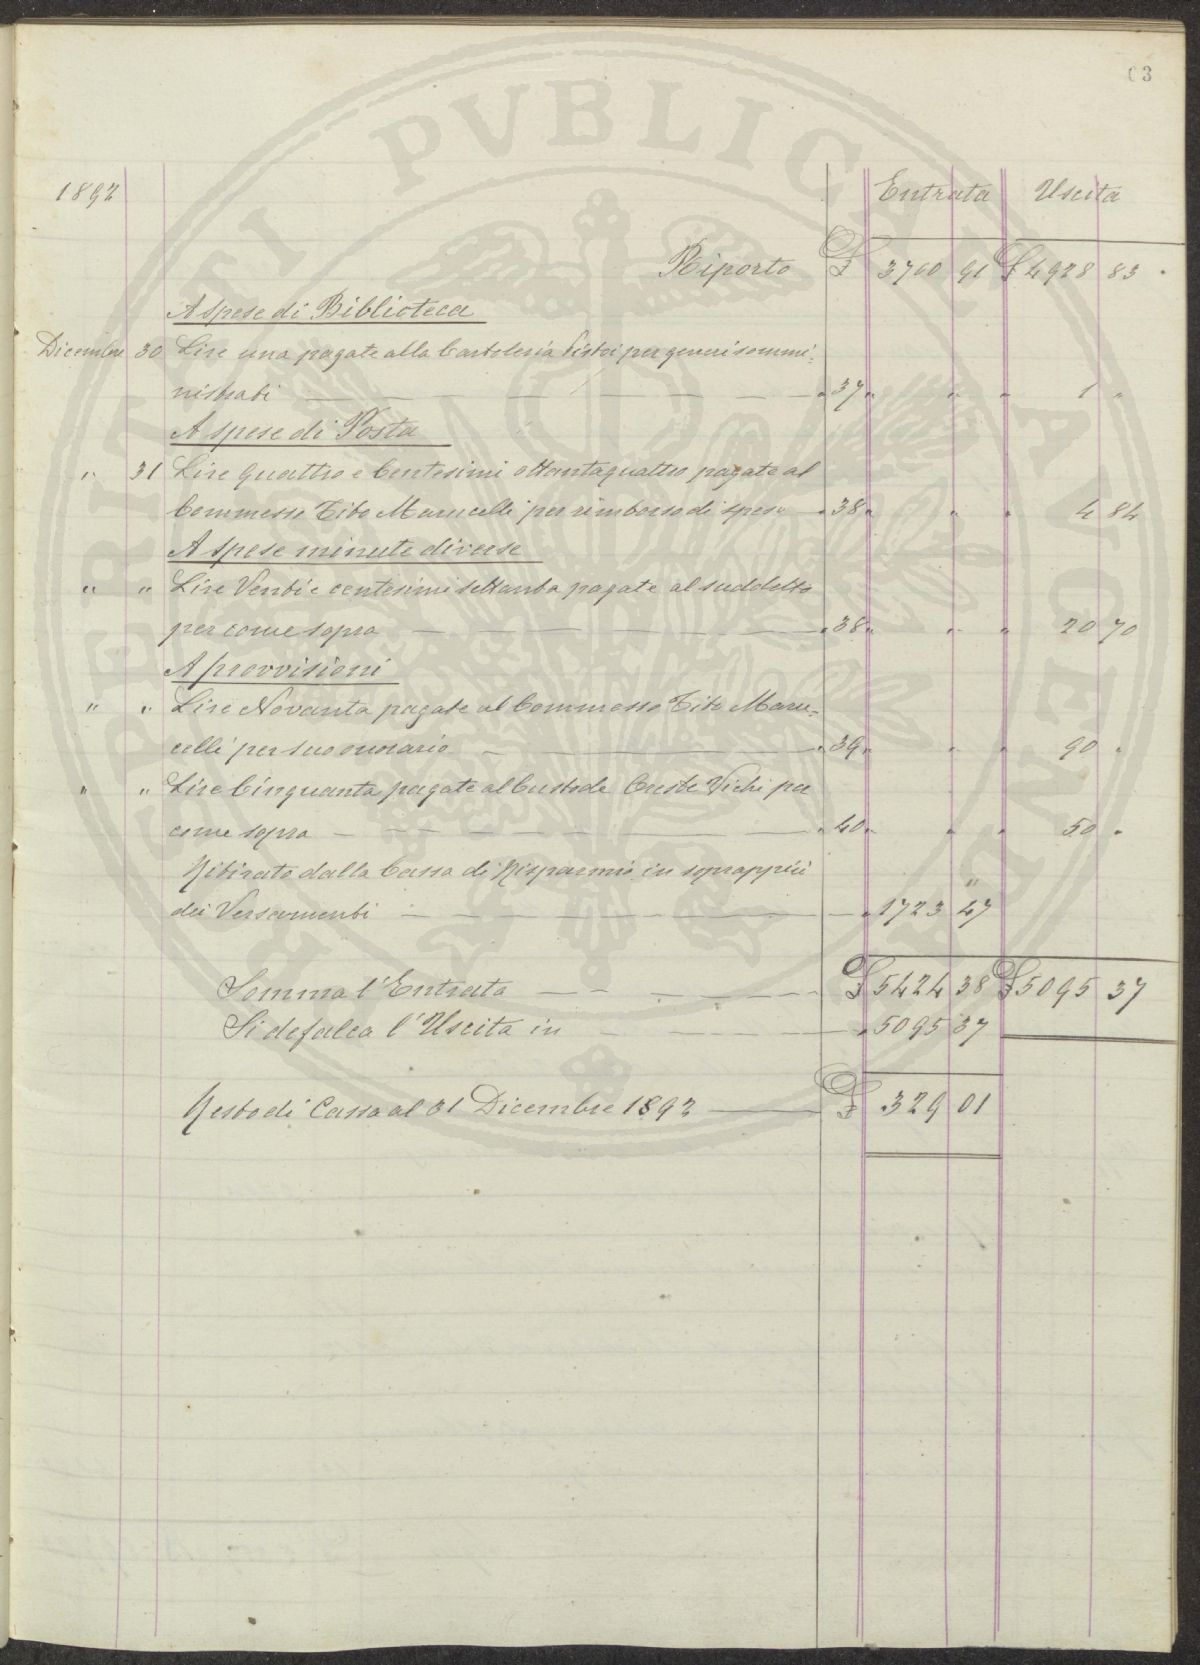 63
1892 Entrata Uscita
Riporto £ 3700 91 £ 4928 83
A spese di Biblioteca
Dicembre 30 Lire una pagate alla Cartoleria Pistoi per generi sommi=
nistrati — " 37 " " " 1 "
A spese di Posta
" 31 Lire Quattro e Centesimi ottantaquattro pagate al
Commesso Tito Marucelli per rimborso di spese " 38 " " " 4 84
A spese minute diverse
" " Lire Venti e centesimi settanta pagate al suddetto
per come sopra — " 38 " " " 20 70
A provvisioni
" " Lire Novanta pagate al Commesso Tito Maru=
celli per suo onorario — " 39 " " " 90 "
" " Lire Cinquanta pagate al Custode Oreste Vichi per
come sopra — " 40 " " " 50 "
Ritirato dalla Cassa di Risparmio in soprappiù
dei Versamenti — " 1723 47
Somma l'Entrata — £ 5424 38 £ 5095 37
Si defalca l'Uscita in — " 5095 37
Resto di Cassa al 31 Dicembre 1892 — £ 329 01